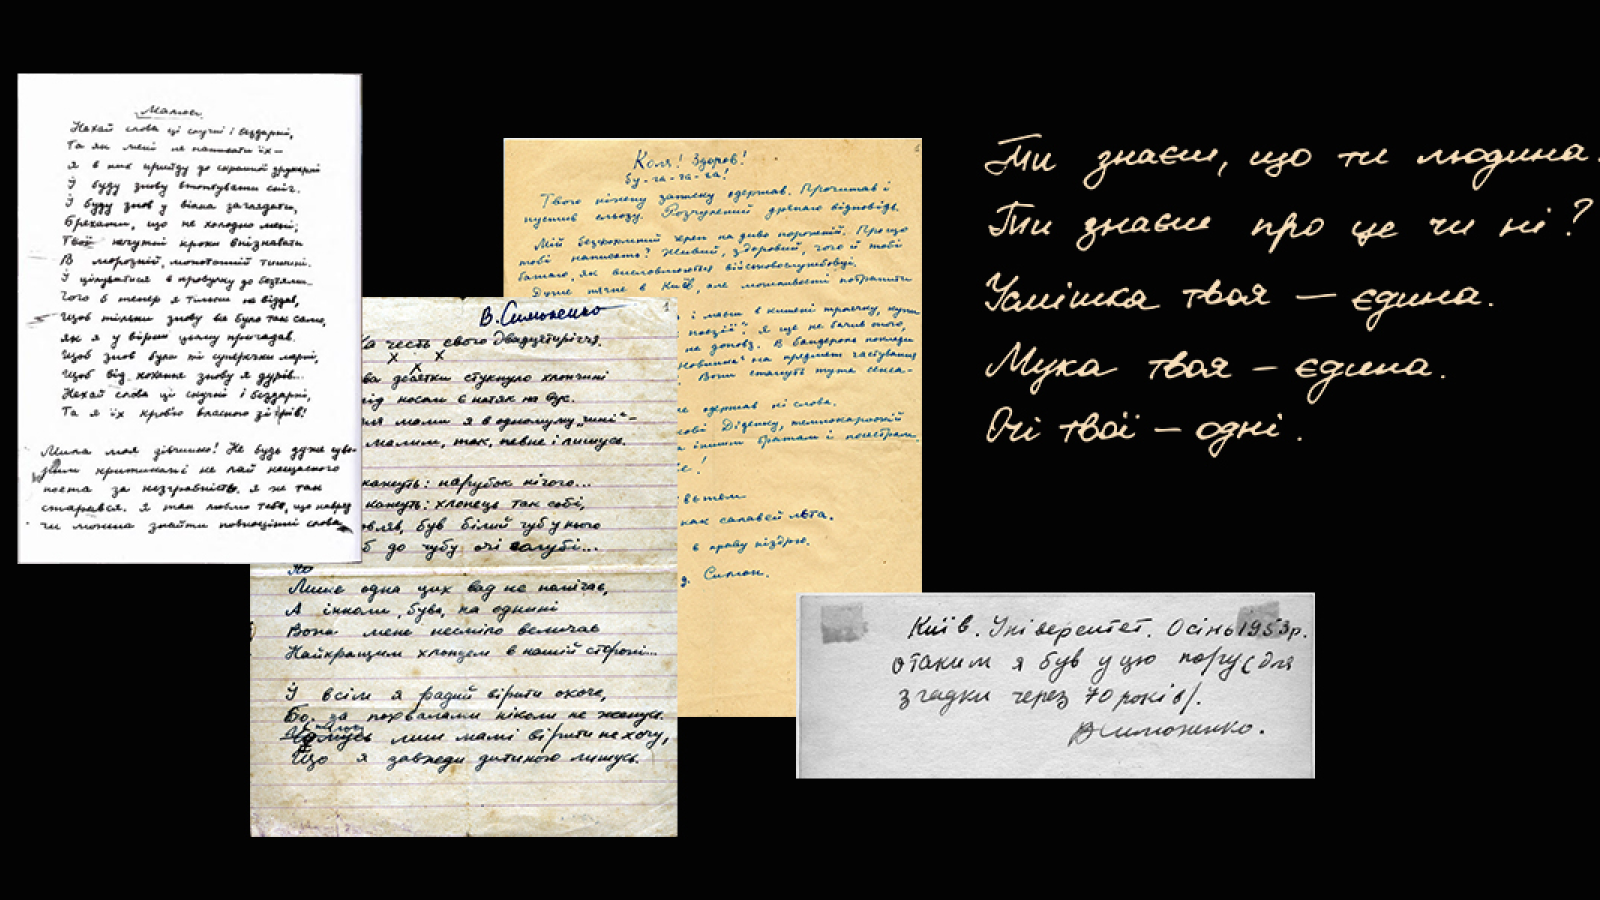 Люсі
Нехай слова ці скучні і бездарні,
Та як мені не написати їх —
Я в них прийду до скрашної друкарні
І буду знову втоптувати сніг.
І буду знов у вікна заглядати,
Брехати, що не холодно мені,
Твої нечутні кроки впізнавати
В морозній, монотонній тишині.
І цілуватися в провулку до безтями...
Чого б тепер я тільки не віддав,
Щоб тільки знову все було так само,
Як я у вірші цьому пригадав.
Щоб знов були ті суперечки марні,
Щоб від кохання знову я дурів...
Нехай слова ці скучні і бездарні,
Та я їх кров'ю власного зігрів!
Мила моя дівчино! Не будь дуже суво-
рим критиком і не лай нещасного
поета за незграбність. Я ж так
старався. Я так люблю тебе, що навряд
чи можна знайти повноцінні слова
В. Симоненко
1
На честь свого двадцятиріччя.
х х
х
два десятки стукнуло хлопчині
під носом є натяк на вус.
для мами я в одному „чині"—
малим, так, певне і лишусь.
кажуть: парубок нічого...
кажуть: хлопець так собі,
мовляв, був білий чуб у нього
б до чубу очі голубі...
Но
Лише одна цих вад не помічає,
А інколи, бува, на однині
Вона мене несміло величає
Найкращим хлопцем в нашій стороні...
І всім я радий вірити охоче,
Бо за похвалами ніколи не женусь.
Чомусь лиш мамі вірити не хочу,
Що я завжди дитиною лишусь.
Коля! Здоров!
Бу-га-га-га!
Твою ніжну записку одержав. Прочитав і
пустив сльозу. Розчулений дряпаю відповідь.
Мій безформний череп на диво порожній. Про що
тобі написати? Живий, здоровий, чого й тобі
бажаю, як висловлюються військовослужбовці.
Дуже тягне в Київ, але можливості потрапити
і маєш в кишені троячку, купи
поезії". Я ще не бачив його,
не доповз. В бандероль поклади
на предмет частування
Вони стануть тут сенса-
не одержав ні слова.
Діденку, темнокарожій
іншим братам і посестрам.
в'єтом
как салавей лєта.
в праву ніздрю.
Симон.
Ти знаєш, що ти людина.
Ти знаєш про це чи ні?
Усмішка твоя — єдина.
Мука твоя — єдина.
Очі твої — одні.
Київ. Університет. Осінь 1953р.
Отаким я був у цю пору (для
згадки через 70 років).
ВСимоненко.